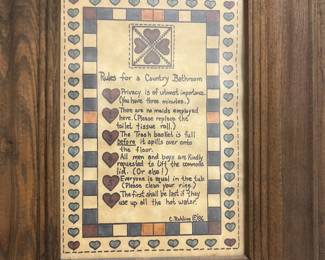 Rules for a Country Bathroom
Privacy is of utmost importance.
(You have three minutes.)
There are no maids employed
here. (Please replace the
toilet tissue roll.)
The Trash basket is full
before it spills over onto
the floor.
All men and boys are kindly
requested to lift the commode
lid. (Or else!)
Everyone is equal in the tub.
(Please clean your ring.)
The first shall be last if they
use up all the hot water.